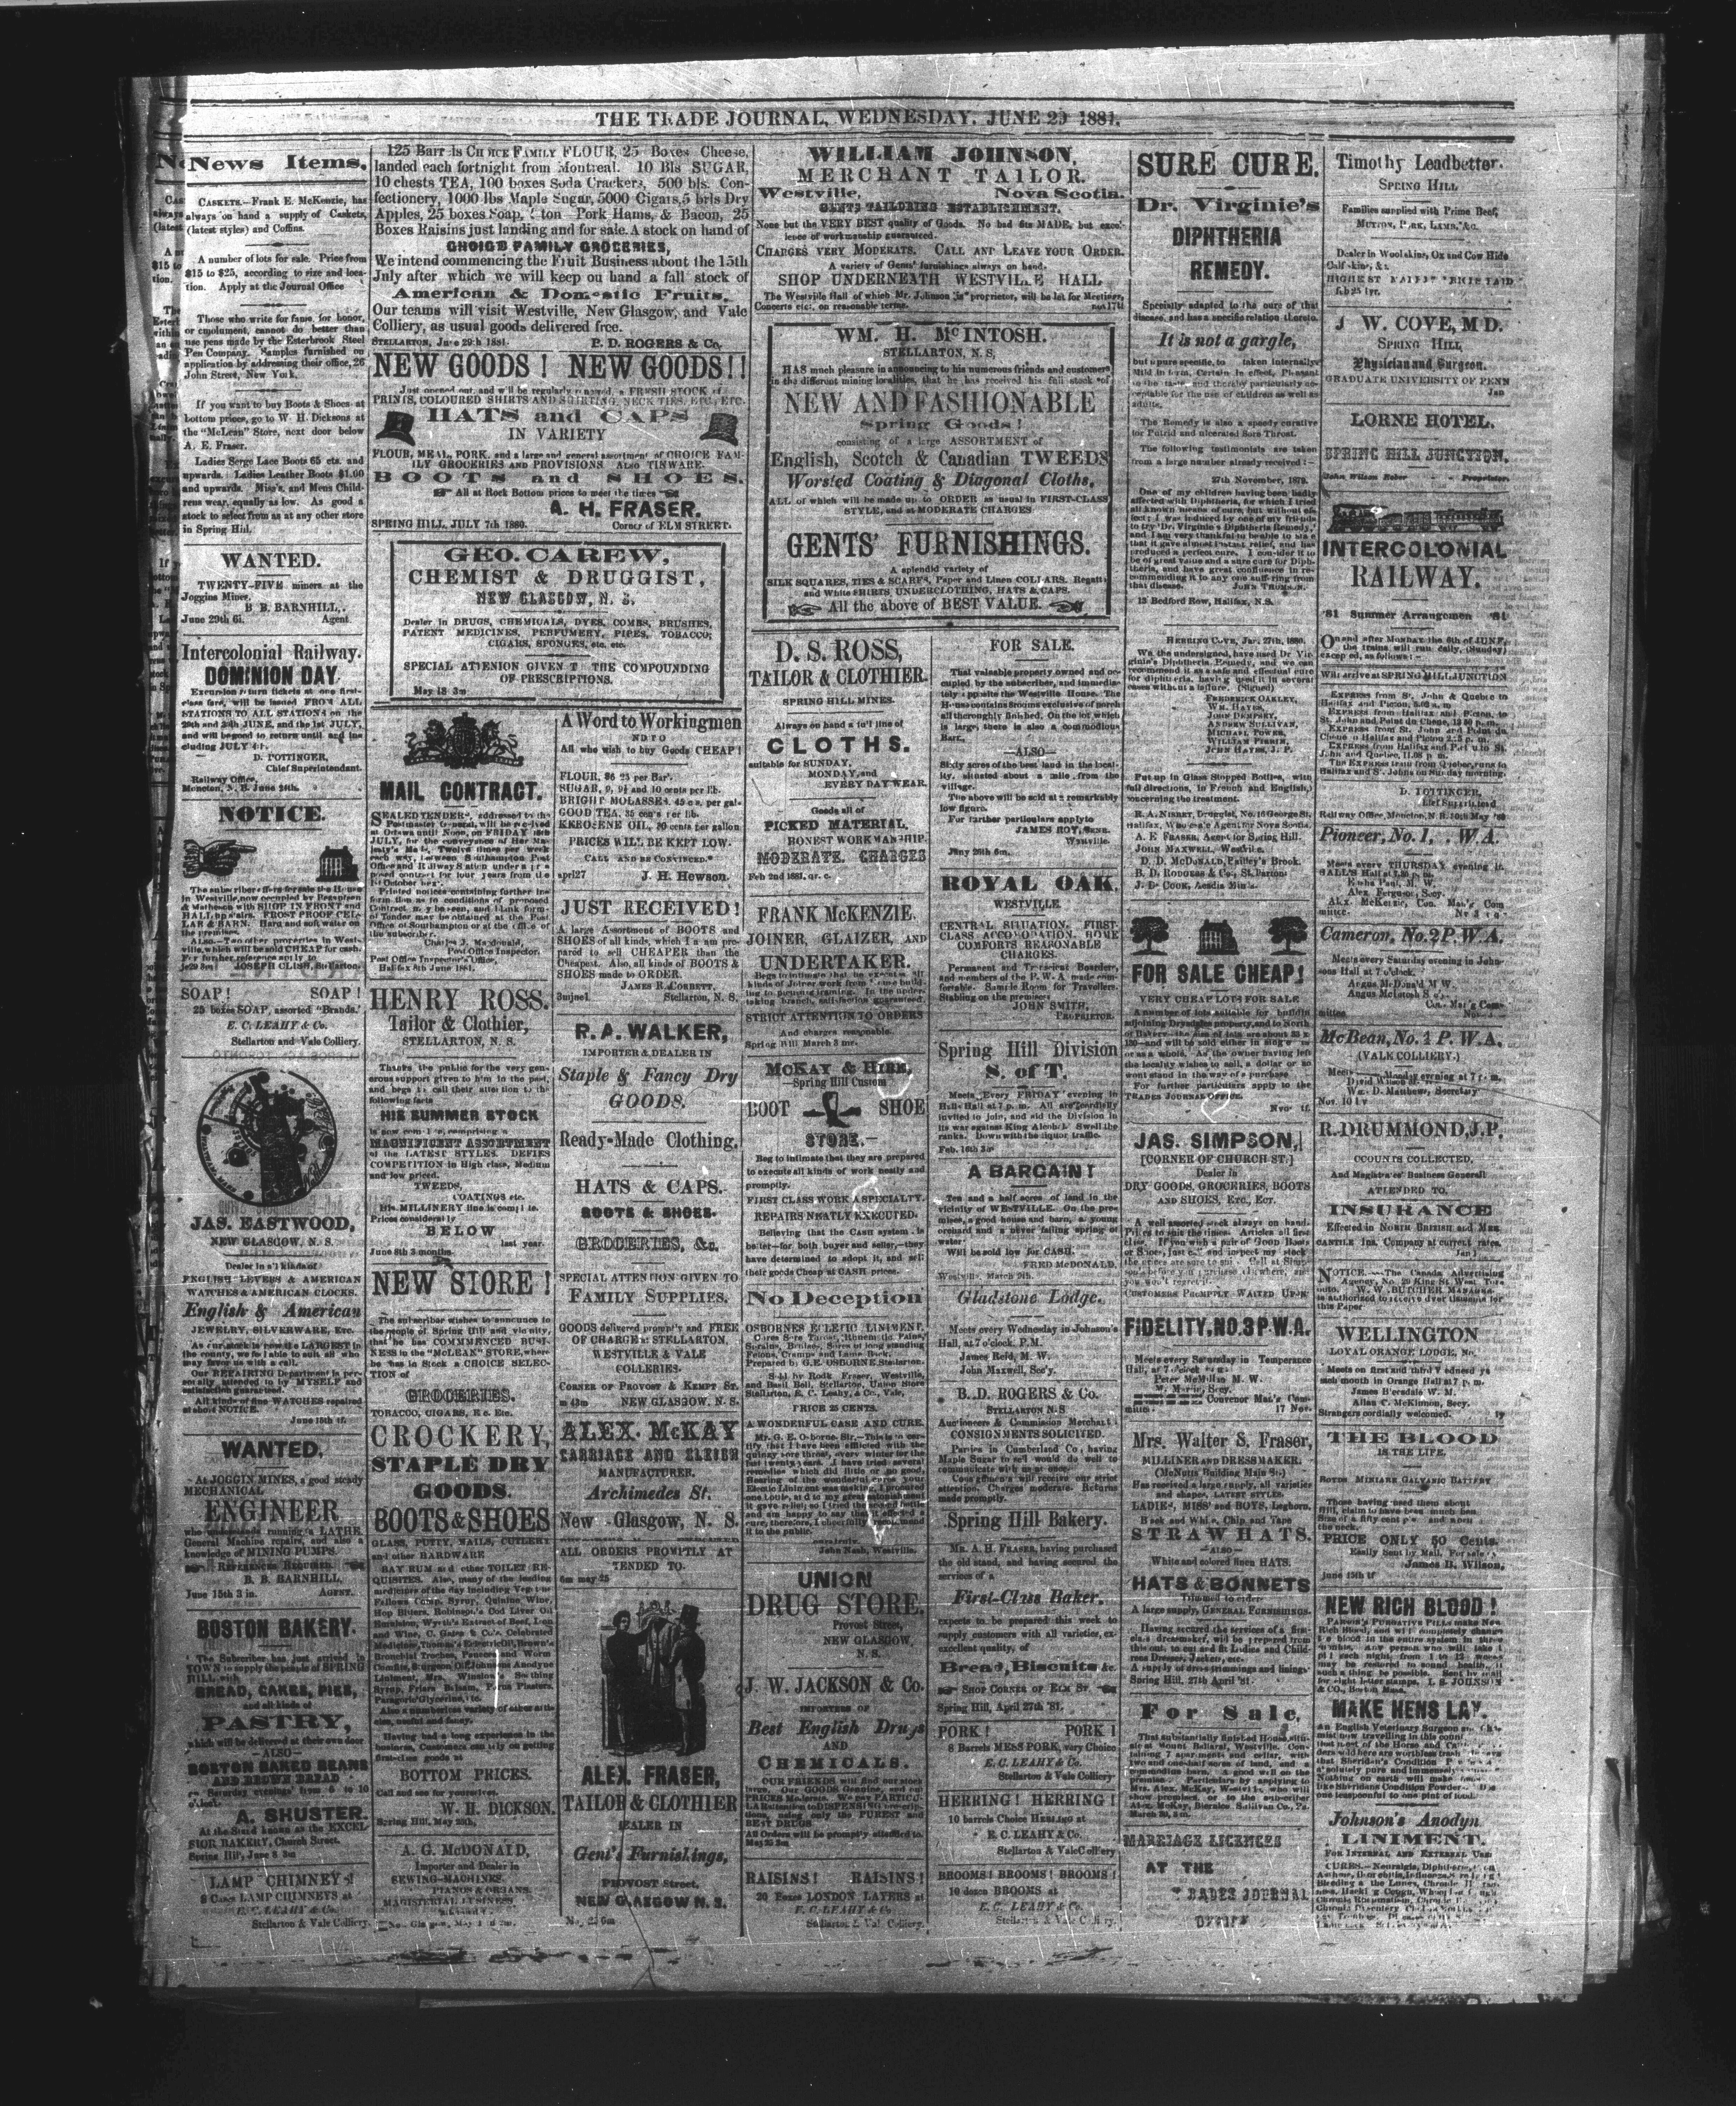 THE TRADE JOURNAL, WEDNESDAY, JUNE 29 1881.
News Items.
CASKETS.—Frank E. McKenzie, has
always on hand a supply of Caskets,
(latest styles) and Coffins.
A number of lots for sale. Price from
$15 to $25, according to size and loca-
tion. Apply at the Journal Office
Those who write for fame, for honor,
or emolument, cannot do better than
use pens made by the Esterbrook Steel
Pen Company. Samples furnished on
application by addressing their office, 26
John Street, New York.
If you want to buy Boots & Shoes at
bottom prices, go to W. H. Dicksons at
the "McLean" Store, next door below
A. E. Fraser.
Ladies Serge Lace Boots 65 cts. and
upwards. Ladies Leather Boots $1.00
and upwards. Miss's, and Mens Child-
rens wear, equally as low. As good a
stock to select from as at any other store
in Spring Hill.
WANTED.
TWENTY-FIVE miners at the
Joggins Mines.
B. B. BARNHILL,
June 29th 6i. Agent.
Intercolonial Railway.
DOMINION DAY.
Excursion return tickets at one first-
class fare, will be issued FROM ALL
STATIONS TO ALL STATIONS on the
and 30th JUNE, and the 1st JULY,
and will be good to return until and in-
cluding JULY
D. POTTINGER,
Chief Superintendent.
Railway Office,
Moncton, N. B. June
NOTICE.
The subscriber offers for sale the House
in Westville, now occupied by
& Matheson with SHOP IN FRONT and
HALL upstairs. FROST PROOF CEL-
LAR & BARN. Hard and soft water on
the premises.
Also.—Two other properties in West-
ville, which will be sold CHEAP for cash.
For further reference apply to
je29 3m JOSEPH CLISH, Stellarton.
SOAP! SOAP!
25 boxes SOAP, assorted "Brands."
E. C. LEAHY & Co.
Stellarton and Vale Colliery.
JAS. EASTWOOD,
NEW GLASGOW, N. S.
Dealer in all kinds of
ENGLISH LEVERS & AMERICAN
WATCHES & AMERICAN CLOCKS.
English & American
JEWELRY, SILVERWARE, Etc.
As our stock is now the LARGEST in
the county, we feel able to suit all who
may favor us with a call.
Our REPAIRING Department is per-
sonally attended to by MYSELF and
satisfaction guaranteed.
All kinds of fine WATCHES repaired
at short NOTICE.
June 15th tf.
WANTED.
At JOGGIN MINES, a good steady
MECHANICAL
ENGINEER
who understands running a LATHE,
General Machine repairs, and also a
knowledge of MINING PUMPS.
References Required.
B. B. BARNHILL,
June 15th 3 in. AGENT.
BOSTON BAKERY.
The Subscriber has just arrived in
TOWN to supply the people of SPRING
HILL with
BREAD, CAKES, PIES,
and all kinds of
PASTRY,
which will be delivered at their own door
—ALSO—
BOSTON BAKED BEANS
AND BROWN BREAD
on Saturday evenings from 6 to 10
o'clock.
A. SHUSTER.
At the Stand known as the EXCEL
SIOR BAKERY, Church Street.
Spring Hill, June 8 3m
LAMP CHIMNEYS!
8 Cases LAMP CHIMNEYS at
E. C. LEAHY & Co.
Stellarton & Vale Colliery.
125 Barrels CHOICE FAMILY FLOUR, 25 Boxes Cheese,
landed each fortnight from Montreal. 10 Bls SUGAR,
10 chests TEA, 100 boxes Soda Crackers, 500 bls. Con-
fectionery, 1000 lbs Maple Sugar, 5000 Cigars, 5 brls Dry
Apples, 25 boxes Soap, ton Pork Hams, & Bacon, 25
Boxes Raisins just landing and for sale. A stock on hand of
CHOICE FAMILY GROCERIES,
We intend commencing the Fruit Business about the 15th
July after which we will keep on hand a full stock of
American & Domestic Fruits.
Our teams will visit Westville, New Glasgow, and Vale
Colliery, as usual goods delivered free.
STELLARTON, June 29th 1881. P. D. ROGERS & Co.
NEW GOODS! NEW GOODS!!
Just opened out, and will be regularly a FRESH STOCK of
PRINTS, COLOURED SHIRTS AND SHIRTING, NECK TIES, ETC., ETC.
HATS and CAPS
IN VARIETY
FLOUR, MEAL, PORK, and a large and general assortment of CHOICE FAM-
ILY GROCERIES AND PROVISIONS ALSO TINWARE.
BOOTS and SHOES.
All at Rock Bottom prices to meet the times
A. H. FRASER.
SPRING HILL, JULY 7th 1880. Corner of ELM STREET.
GEO. CAREW,
CHEMIST & DRUGGIST,
NEW GLASGOW, N. S.
Dealer in DRUGS, CHEMICALS, DYES, COMBS, BRUSHES,
PATENT MEDICINES, PERFUMERY, PIPES, TOBACCO;
CIGARS, SPONGES, etc. etc.
SPECIAL ATTENION GIVEN T THE COMPOUNDING
OF PRESCRIPTIONS.
May 18 3m
MAIL CONTRACT.
SEALED TENDERS, addressed to the
Postmaster General, will be received
at Ottawa until Noon, on FRIDAY 15th
JULY, for the conveyance of Her Ma-
jesty's Mails, Twelve times per week
each way, between Southampton Post
Office and Railway Station under a pro-
posed contract for four years from the
1st October next.
Printed notices containing further in-
formation as to conditions of proposed
Contract may be seen, and blank forms
of Tender may be obtained at the Post
Office of Southampton or at the office of
the subscriber.
Charles J. Macdonald,
Post Office Inspector.
Post Office Inspector's Office,
Halifax 8th June 1881.
HENRY ROSS.
Tailor & Clothier,
STELLARTON, N. S.
Thanks the public for the very gen-
erous support given to him in the past,
and begs to call their attention to the
following facts
HIS SUMMER STOCK
is now complete, comprising a
MAGNIFICENT ASSORTMENT
of the LATEST STYLES. DEFIES
COMPETITION in High class, Medium
and low priced.
TWEEDS,
COATINGS etc.
His MILLINERY line is complete.
Prices considerably
BELOW
last year.
June 8th 3 months.
NEW STORE!
The subscriber wishes to announce to
the people of Spring Hill and vicinity,
that he has COMMENCED BUSI-
NESS in the "McLEAN" STORE, where
he has in Stock a CHOICE SELEC-
TION of
GROCERIES.
TOBACCO, CIGARS, Etc. Etc.
CROCKERY,
STAPLE DRY
GOODS.
BOOTS & SHOES
GLASS, PUTTY, NAILS, CUTLERY
and other HARDWARE
BAY RUM and other TOILET RE-
QUISITES. Also, many of the leading
medicines of the day including Vegetine
Fellows Comp. Syrup, Quinine Wine,
Hop Bitters, Robinson's Cod Liver Oil
Emulsion, Wyeth's Extract of Beef, Iron
and Wine, C. Gates & Co's. Celebrated
Medicines, Thomas's Eclectric Oil, Brown's
Bronchial Troches, Pancers and Worm
Liniment, Mrs. Winslow's Soothing
Syrup, Friars Balsam, Porus Plasters,
Paragoric Glycerine, etc.
Also a numberless variety of other arti-
cles, useful and fancy.
Having had a long experience in the
business, Customers can rely on getting
first-class goods at
BOTTOM PRICES.
Call and see for yourselves.
W. H. DICKSON.
Spring Hill, May 25th,
A. G. McDONALD,
Importer and Dealer in
SEWING-MACHINES,
PIANOS & ORGANS.
A Word to Workingmen
AND TO
All who wish to buy Goods CHEAP!
FLOUR, $6 25 per Bar.
SUGAR, 9, 9½ and 10 cents per lb.
BRIGHT MOLASSES, 45 cts. per gal.
GOOD TEA, 35 cents per lb.
KEROSENE OIL, 20 cents per gallon
PRICES WILL BE KEPT LOW.
CALL AND BE CONVINCED.
april27 J. H. Hewson.
JUST RECEIVED!
A large Assortment of BOOTS and
SHOES of all kinds, which I a am pre-
pared to sell CHEAPER than the
Cheapest. Also, all kinds of BOOTS &
SHOES made to ORDER.
JAMES R. CORBETT.
3mjne1. Stellarton, N. S.
R. A. WALKER,
IMPORTER & DEALER IN
Staple & Fancy Dry
GOODS.
Ready-Made Clothing,
HATS & CAPS.
BOOTS & SHOES.
GROCERIES, &c.
SPECIAL ATTENTION GIVEN TO
FAMILY SUPPLIES.
GOODS delivered promptly and FREE
OF CHARGE at STELLARTON,
WESTVILLE & VALE
COLLERIES.
CORNER OF PROVOST & KEMPT ST.
NEW GLASGOW, N. S.
ALEX. McKAY
CARRIAGE AND SLEIGH
MANUFACTURER.
Archimedes St.
New Glasgow, N. S.
ALL ORDERS PROMPTLY AT
TENDED TO.
6m may 25
ALEX. FRASER,
TAILOR & CLOTHIER
DEALER IN
Gent's Furnishings,
PROVOST Street,
NEW GLASGOW N. S.
WILLIAM JOHNSON,
MERCHANT TAILOR.
Westville, Nova Scotia.
GENTS TAILORING ESTABLISHMENT.
None but the VERY BEST quality of Goods. No bad fits MADE, but excel-
lence of workmanship guaranteed.
CHARGES VERY MODERATE. CALL AND LEAVE YOUR ORDER.
A variety of Gents' furnishings always on hand.
SHOP UNDERNEATH WESTVILLE HALL
The Westville Hall of which Mr. Johnson is proprietor, will be let for Meetings,
Concerts etc., on reasonable terms.
WM. H. McINTOSH.
STELLARTON, N. S.
HAS much pleasure in announcing to his numerous friends and customers
in the different mining localities, that he has received his full stock of
NEW AND FASHIONABLE
Spring Goods!
consisting of a large ASSORTMENT of
English, Scotch & Canadian TWEEDS
Worsted Coating & Diagonal Cloths,
ALL of which will be made up to ORDER as usual in FIRST-CLASS
STYLE, and at MODERATE CHARGES
GENTS' FURNISHINGS.
A splendid variety of
SILK SQUARES, TIES & SCARFS, Paper and Linen COLLARS. Regatta
and White SHIRTS, UNDERCLOTHING, HATS & CAPS.
All the above of BEST VALUE.
D. S. ROSS,
TAILOR & CLOTHIER.
SPRING HILL MINES.
Always on hand a full line of
CLOTHS.
suitable for SUNDAY,
MONDAY, and
EVERY DAY WEAR.
Goods all of
PICKED MATERIAL.
HONEST WORKMANSHIP.
MODERATE CHARGES
Feb 2nd 1881,
FRANK McKENZIE.
JOINER, GLAIZER, AND
UNDERTAKER.
Begs to intimate that he executes all
kinds of Joiner work from house build-
ing to picture framing. In the under-
taking branch, satisfaction guaranteed.
STRICT ATTENTION TO ORDERS
And charges reasonable.
Spring Hill March 3 mr.
McKAY & HIRE,
—Spring Hill Custom
BOOT SHOE
STORE.—
Beg to intimate that they are prepared
to execute all kinds of work neatly and
promptly.
FIRST CLASS WORK A SPECIALTY.
REPAIRS NEATLY EXECUTED.
Believing that the CASH system is
better—for both buyer and seller,—they
have determined to adopt it, and sell
their goods Cheap at CASH prices.
No Deception
OSBORNES ECLETIC LINIMENT.
Cures Sore Throat, Rheumatic Pains,
Sprains, Bruises, Sores of long standing
Felons, Cramps and Lame Back.
Prepared by G. E. OSBORNE, Stellarton.
Sold by Rodk Fraser, Westville,
and Basil Bell, Stellarton, Union Store
Stellarton, E. C. Leahy, & Co., Vale,
PRICE 25 CENTS.
A WONDERFUL CASE AND CURE.
Mr. G. E. Osborne. Sir,—This is to cer-
tify that I have been afflicted with the
quinsy sore throat, every winter for the
last twenty years. I have tried several
remedies which did little or no good,
Hearing of the wonderful cures your
Eletic Liniment was making, I procured
one bottle, and to my great astonishment
it gave relief; so I tried the second bottle
and am happy to say that it effected a
cure, therefore, I cheerfully recommend
it to the public.
John Nash, Westville.
UNION
DRUG STORE.
Provost Street,
NEW GLASGOW,
N. S.
J. W. JACKSON & Co.
IMPORTERS OF
Best English Drugs
AND
CHEMICALS.
OUR FRIENDS will find our stock
large. Our GOODS Genuine, and our
PRICES Moderate. We pay PARTICU-
LAR attention to DISPENSING prescrip-
tions, using only the PUREST and
BEST DRUGS
All Orders will be promptly attended to.
May 25 3m
RAISINS! RAISINS!
20 Boxes LONDON LAYERS at
E. C. LEAHY & Co
Stellarton & Val Colliery.
FOR SALE.
That valuable property owned and oc-
cupied by the subscriber, and immedia-
tely opposite the Westville House. The
House contains 8 rooms exclusive of porch
all thoroughly finished. On the lot, which
is large, there is also a commodious
Barn.
—ALSO—
Sixty acres of the best land in the local-
ity, situated about a mile from the
village.
The above will be sold at a remarkably
low figure.
For further particulars apply to
JAMES ROY, Senr.
Westville.
Jany 26th 6m.
ROYAL OAK.
WESTVILLE.
CENTRAL SITUATION, FIRST-
CLASS ACCOMODATION, HOME
COMFORTS REASONABLE
CHARGES.
Permanent and Transient Boarders,
and members of the P. W. A. made com-
fortable. Sample Room for Travellers.
Stabling on the premises
JOHN SMITH,
PROPRIETOR.
Spring Hill Division
S. of T.
Meets Every FRIDAY evening in
Hall at 7 p. m. All are cordially
invited to join, and aid the Division in
its war against King Alcohol. Swell the
ranks. Down with the liquor traffic.
Feb. 16th 3m
A BARGAIN!
Ten and a half acres of land in the
vicinity of WESTVILLE. On the pre-
mises, a good house and barn, a young
orchard and a never failing spring of
water.
Will be sold low for CASH.
FRED McDONALD.
Westville March 9th.
Gladstone Lodge.
Meets every Wednesday in Johnson's
Hall, at 7 o'clock, P. M.
James Reid, M. W.
John Maxwell, Sec'y.
B. D. ROGERS & Co.
STELLARTON N-S
Auctioneers & Commission Merchants
CONSIGNMENTS SOLICITED.
Parties in Cumberland Co, having
Maple Sugar to sell would do well to
communicate with us at once.
Consignments will receive our strict
attention. Charges moderate. Returns
made promptly.
Spring Hill Bakery.
MR. A. H. FRASER, having purchased
the old stand, and having secured the
services of a
First-Class Baker,
expects to be prepared this week to
supply customers with all varieties, ex-
excellent quality, of
Bread, Biscuits &c.
SHOP CORNER OF ELM ST.
Spring Hill, April 27th '81.
PORK! PORK!
8 Barrels MESS PORK, very Choice
E. C. LEAHY & Co.
Stellarton & Vale Colliery
HERRING! HERRING!
10 barrels Choice HERRING at
E. C. LEAHY & Co.
Stellarton & Vale Colliery
BROOMS! BROOMS! BROOMS!
10 dozen BROOMS at
E. C. LEAHY & Co.
SURE CURE.
Dr. Virginie's
DIPHTHERIA
REMEDY.
Specially adapted to the cure of that
disease, and has a specific relation thereto.
It is not a gargle,
but a pure specific, to taken internally
Mild in form, Certain in effect, Pleasant
to the taste and thereby particularly ac-
ceptable for the use of children as well as
adults.
The Remedy is also a speedy curative
for Putrid and ulcerated Sore Throat.
The following testimonials are taken
from a large number already received:—
27th November, 1879.
One of my children having been badly
affected with Diphtheria, for which I tried
all known means of cure, but without ef-
fect; I was induced by one of my friends
to try 'Dr. Virginie's Diphtheria Remedy,'
and I am very thankful to be able to state
that it gave almost instant relief, and has
produced a perfect cure. I consider it to
be of great value and a sure cure for Diph-
theria, and have great confidence in re-
commending it to any one suffering from
that disease. JOHN TRUMAN.
13 Bedford Row, Halifax, N.S.
HERRING COVE, Jan. 27th, 1880.
We the undersigned, have used Dr. Vir-
ginie's Diphtheria Remedy, and we can
recommend it as a safe and effectual cure
for diphtheria, having used it in several
cases without a failure. (Signed)
FREDERICK OAKLEY,
WM. HAYES,
JOHN DEMPSEY,
ANDREW SULLIVAN,
MICHAEL POWER,
JOHN HAYES, J. P.
Put up in Glass Stopped Bottles, with
full directions, in French and English,
concerning the treatment.
R. A. NISBET, Druggist, No. 16 George St.
Halifax, Wholesale Agent for Nova Scotia.
A. E. FRASER, Agent for Spring Hill.
JOHN MAXWELL, Westville.
D. D. McDONALD, Bailey's Brook.
B. D. RODGERS & Co., Stellarton;
J. D. COOK, Acadia Mines.
FOR SALE CHEAP!
VERY CHEAP LOTS FOR SALE
A number of lots suitable for building
adjoining Drysdales property, and to North
of Bakery—the size of lots are about 33 x
130—and will be sold either in single
or as a whole. As the owner having left
the locality wishes to sell, a dollar or so
wont stand in the way of a purchase
For further particulars apply to the
TRADES JOURNAL OFFICE.
JAS. SIMPSON,
[CORNER OF CHURCH ST.]
Dealer in
DRY GOODS, GROCERIES, BOOTS
AND SHOES, ETC., ECT.
A well assorted stock always on hand.
Prices to suit the times. Articles all first
class. If you wish a pair of Good Boots
or Shoes, just call and inspect my stock
the prices are sure to suit
CUSTOMERS PROMPTLY WAITED UPON
FIDELITY, NO. 3 P. W. A.
Meets every Saturday in Temperance
Hall, at 7 o'clock
Peter McMillan M. W.
Convenor Man's Com-
mittee 17 Nov.
Mrs. Walter S. Fraser,
MILLINER AND DRESSMAKER.
(McNutts Building Main St.)
Has received a large supply, all varieties
and shapes, LATEST STYLES.
LADIES, MISS' and BOYS, Leghorn,
Back and White, Chip and Tape
STRAW HATS.
—ALSO—
White and colored linen HATS.
HATS & BONNETS
Trimmed to order
A large supply, GENERAL FURNISHINGS.
Having secured the services of a first-
class dressmaker, will be prepared from
this out, to cut and fit Ladies and Child-
rens Dresses, Jackets, etc.
A supply of dress trimmings and linings
Spring Hill, 27th April '81.
For Sale,
That substantially finished House, situ-
ate at Mount Ballarat, Westville. Con-
taining 7 apartments and cellar, with
two and one-half acres of land, and a
commodious barn. A good well on the
premises. Particulars by applying to
Mrs. Alex. McKay, Westville, who will
show premises, or to the subscriber
Alex. McKay, Bernice, Sullivan Co., Pa.
MARRIAGE LICENCES
AT THE
TRADES JOURNAL
OFFICE
Timothy Leadbetter.
SPRING HILL
Families supplied with Prime Beef,
MUTTON, PORK, LAMB, &c.
Dealer in Woolskins, Ox and Cow Hide
Calf skins, &c.
HIGHEST MARKET PRICE PAID
feb23 1yr.
J W. COVE, MD.
SPRING HILL
Physician and Surgeon.
GRADUATE UNIVERSITY OF PENN
Jan
LORNE HOTEL.
SPRING HILL JUNCTION.
John Wilson Reber - - Proprietor.
INTERCOLONIAL
RAILWAY.
'81 Summer Arrangemen '81
On and after MONDAY the 6th of JUNE,
the trains will run daily, (Sunday)
excepted, as follows:—
Will arrive at SPRING HILL JUNCTION
EXPRESS from St. John & Quebec to
Halifax and Pictou,
EXPRESS from Halifax and Pictou, to
St. John and Point du Chene, 12.50 p. m.
EXPRESS from St. John and Point du
Chene to Halifax and Pictou 2.25 p. m.
EXPRESS from Halifax and Pictou to St.
John and Quebec, 11.08 p. m.
The EXPRESS train from Quebec, runs to
Halifax and St. Johns on Sunday morning.
D. POTTINGER,
Chief Superintend
Railway Office, Moncton, N. B. 10th May
Pioneer, No. 1, . W. A.
Meets every THURSDAY evening in
HALL'S Hall at 7.30 p. m.
Alex. Ferguson, Secy.
Alex. McKenzie, Con. Man's Com
mittee.
Cameron, No. 2 P. W. A.
Meets every Saturday evening in John-
sons Hall at 7 o'clock.
Angus McDonald M W.
Angus McIntosh
Con. Man's Com-
mittee
McBean, No. 4 P. W. A.
(VALE COLLIERY.)
Meets Monday evening at 7 p. m.
Wm. D. Matthews, Secretary
Nov. 10 1y
R. DRUMMOND, J.P.
CCOUNTS COLLECTED,
And Magistrates' Business Generall
ATTENDED TO.
INSURANCE
Effected in NORTH BRITISH and MER-
CANTILE Ins. Company at current rates.
Jan 1
NOTICE.—The Canada Advertising
Agency, No. 29 King St. West, Toro-
nto. W. W. BUTCHER Manager
is authorized to receive dvertisements for
this Paper
WELLINGTON
LOYAL ORANGE LODGE, No.
Meets on first and third Wednesd ys
each month in Orange Hall at 7 p. m.
James Bersdale W. M.
Allan C. McKinnon, Secy.
Strangers cordially welcomed. 1y
THE BLOOD
IS THE LIFE.
Those having used them about
Hill, claim to have been much ben
Size of a fifty cent piece and worn
the neck.
PRICE ONLY 50 Cents.
Easily Sent by Mail. For sale
James D. Wilson,
june 15th tf
NEW RICH BLOOD!
PARSON'S PURGATIVE PILLS make New
Rich Blood, and will completely change
the blood in the entire system in three
months. Any person who will take
pill each night, from 1 to 12 weeks
may be restored to sound health, if
such a thing be possible. Sent by mail
for eight letter stamps. I. S. JOHNSON
& CO., Boston Mass.
MAKE HENS LAY.
An English Veterinary Surgeon
Nothing on earth will make
like Sheridans Condition Powder
one teaspoonful to one pint of food.
Johnson's Anodyn
LINIMENT.
FOR INTERNAL AND EXTERNAL USE:
CURES.—Neuralgia,